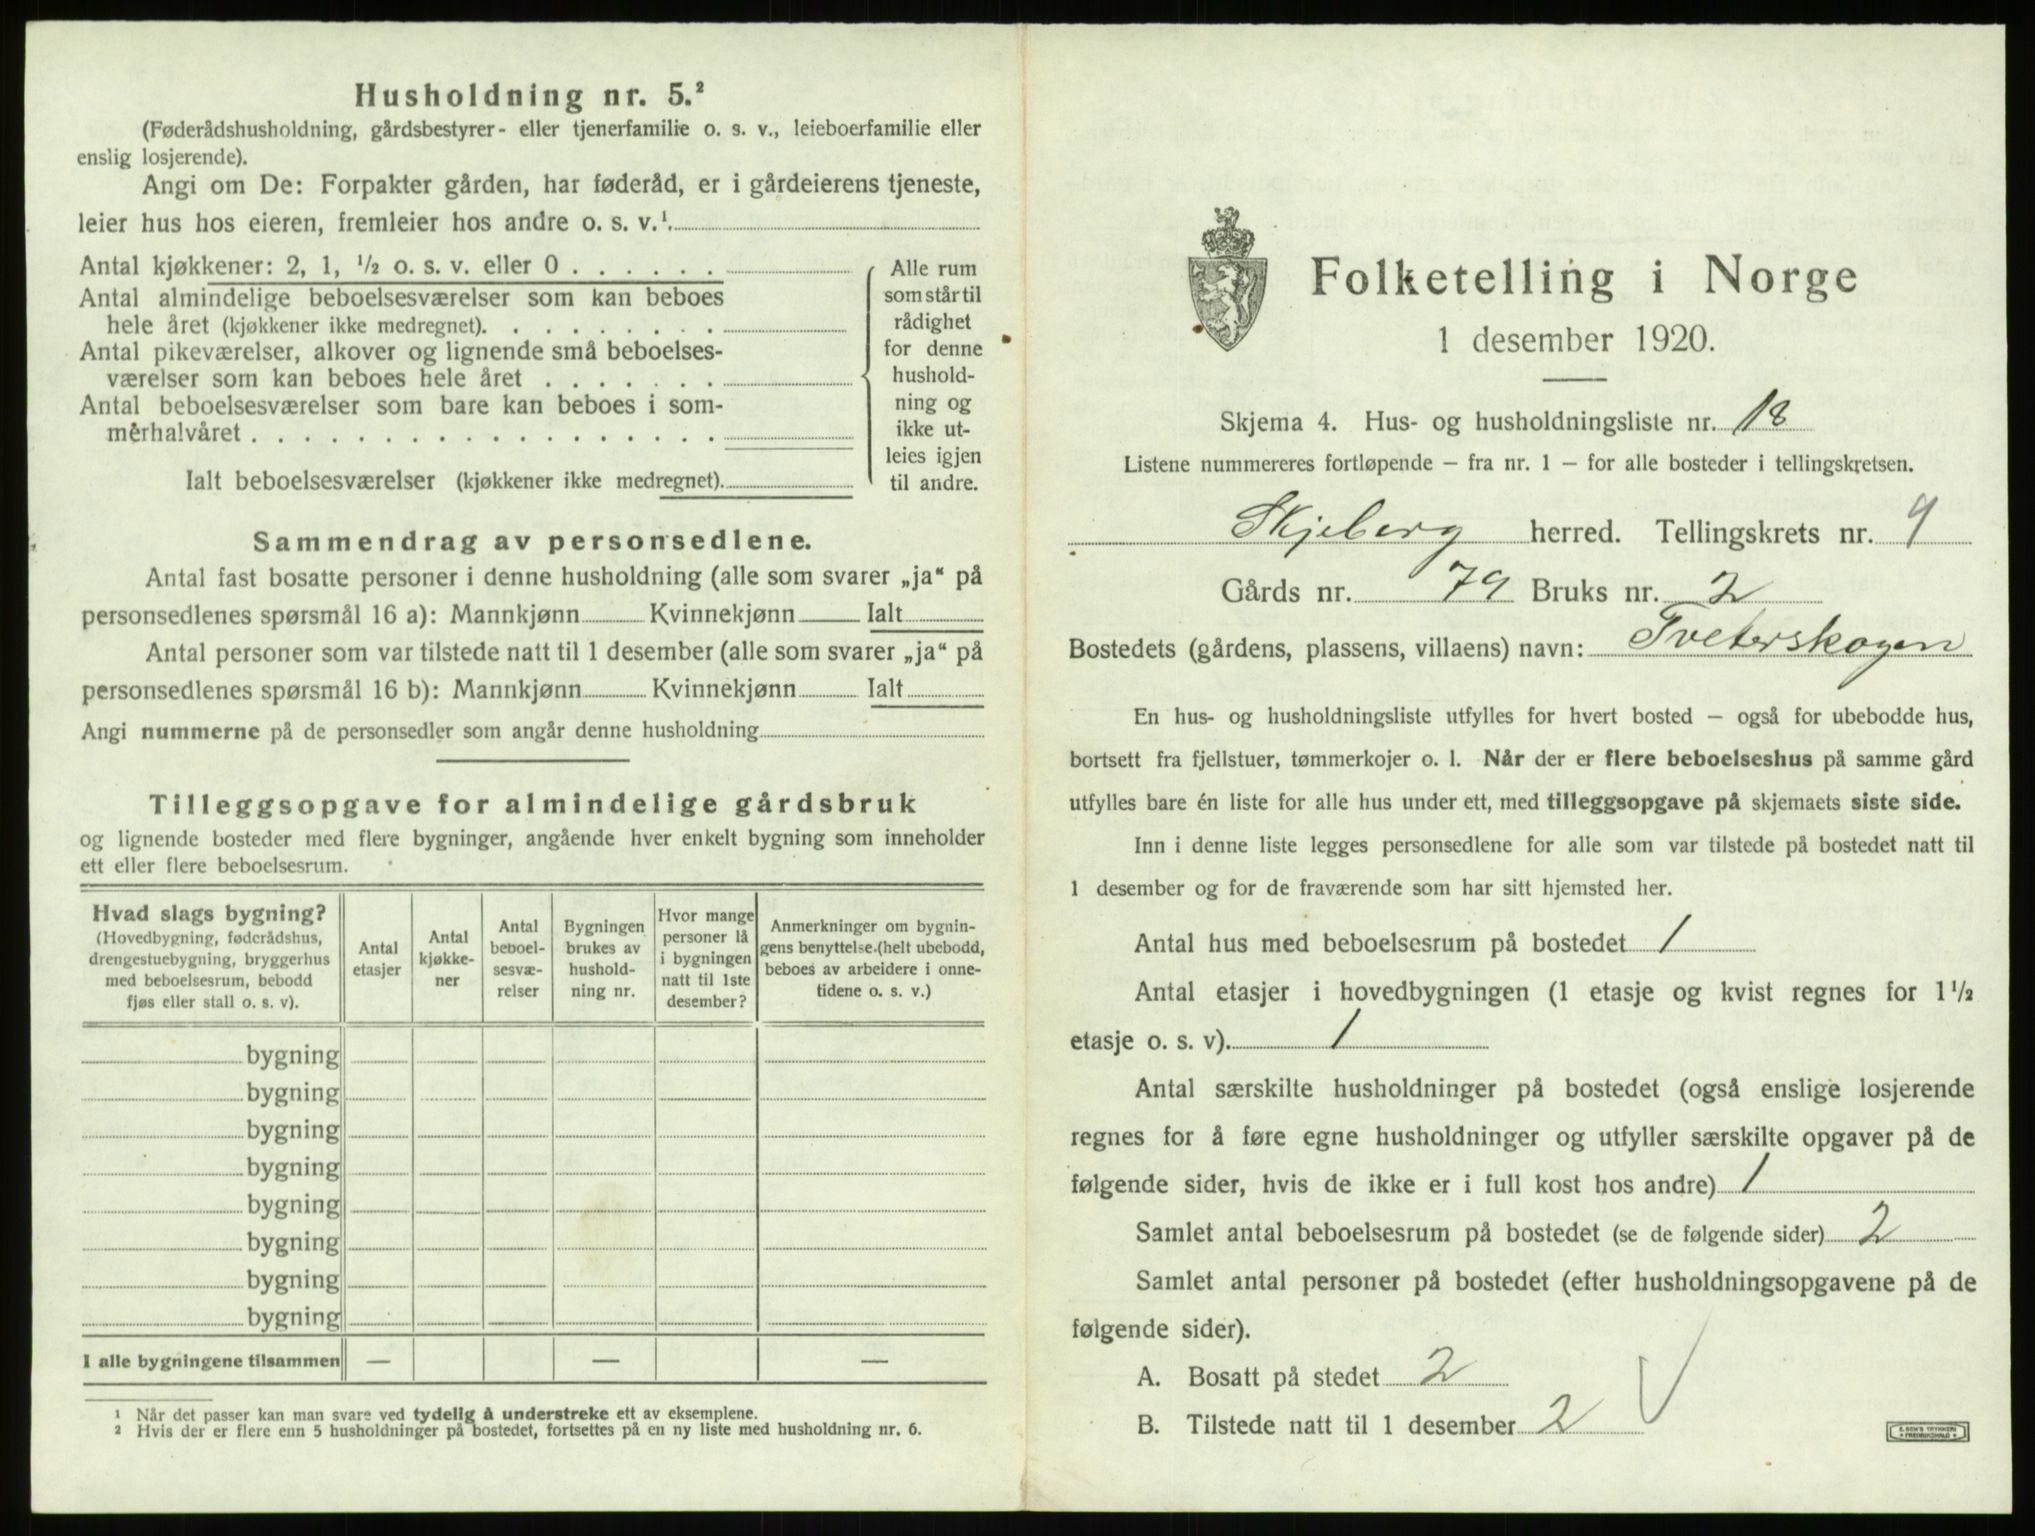 Husholdning nr. 5.²
(Føderådshusholdning, gårdsbestyrer- eller tjenerfamilie o. s. v., leieboerfamilie eller
enslig losjerende).
Angi om De: Forpakter gården, har føderåd, er i gårdeierens tjeneste,
leier hus hos eieren, fremleier hos andre o. s. v.¹
Antal kjøkkener: 2, 1, ½ o. s. v. eller 0 . . . . . .
Antal almindelige beboelsesværelser som kan beboes
hele året (kjøkkener ikke medregnet). . . . . . . . .
Antal pikeværelser, alkover og lignende små beboelses-
værelser som kan beboes hele året . . . . . . .
Antal beboelsesværelser som bare kan beboes i som-
merhalvåret . . . . . . . . . . . . . . . . . .
Ialt beboelsesværelser (kjøkkener ikke medregnet).
Alle rum
som står til
rådighet
for denne
hushold-
ning og
ikke ut-
leies igjen
til andre.
Sammendrag av personsedlene.
Antal fast bosatte personer i denne husholdning (alle som svarer „ja“ på
personsedlenes spørsmål 16 a): Mannkjønn Kvinnekjønn Ialt
Antal personer som var tilstede natt til 1 desember (alle som svarer „ja“ på
personsedlenes spørsmål 16 b): Mannkjønn Kvinnekjønn Ialt
Angi nummerne på de personsedler som angår denne husholdning
Tilleggsopgave for almindelige gårdsbruk
og lignende bosteder med flere bygninger, angående hver enkelt bygning som inneholder
ett eller flere beboelsesrum.
Hvad slags bygning?
(Hovedbygning, føderådshus,
drengestuebygning, bryggerhus
med beboelsesrum, bebodd
fjøs eller stall o. s. v).
Antal
etasjer
Antal
kjøkke-
ner
Antal
beboel-
sesvæ-
relser
Bygningen
brukes av
hushold-
ning nr.
Hvor mange
personer lå
i bygningen
natt til 1ste
desember?
Anmerkninger om bygnin-
gens benyttelse.(helt ubebodd,
beboes av arbeidere i onne-
tidene o. s. v.)
bygning
bygning
bygning
bygning
bygning
bygning
bygning
bygning
I alle bygningene tilsammen — — —
¹ Når det passer kan man svare ved tydelig å understreke ett av eksemplene.
² Hvis der er flere enn 5 husholdninger på bostedet, fortsettes på en ny liste med husholdning nr. 6.
Folketelling i Norge
1 desember 1920.
Skjema 4. Hus- og husholdningsliste nr. 18
Listene nummereres fortløpende – fra nr. 1 – for alle bosteder i tellingskretsen.
Skjeberg herred. Tellingskrets nr. 9
Gårds nr. 79 Bruks nr. 2
Bostedets (gårdens, plassens, villaens) navn: Tveterskogen
En hus- og husholdningsliste utfylles for hvert bosted – også for ubebodde hus,
bortsett fra fjellstuer, tømmerkojer o. l. Når der er flere beboelseshus på samme gård
utfylles bare én liste for alle hus under ett, med tilleggsopgave på skjemaets siste side.
Inn i denne liste legges personsedlene for alle som var tilstede på bostedet natt til
1 desember og for de fraværende som har sitt hjemsted her.
Antal hus med beboelsesrum på bostedet 1
Antal etasjer i hovedbygningen (1 etasje og kvist regnes for 1½
etasje o. s. v). 1
Antal særskilte husholdninger på bostedet (også enslige losjerende
regnes for å føre egne husholdninger og utfyller særskilte opgaver på de
følgende sider, hvis de ikke er i full kost hos andre) 1
Samlet antal beboelsesrum på bostedet (se de følgende sider) 2
Samlet antal personer på bostedet (efter husholdningsopgavene på de
følgende sider).
A. Bosatt på stedet 2
B. Tilstede natt til 1 desember 2